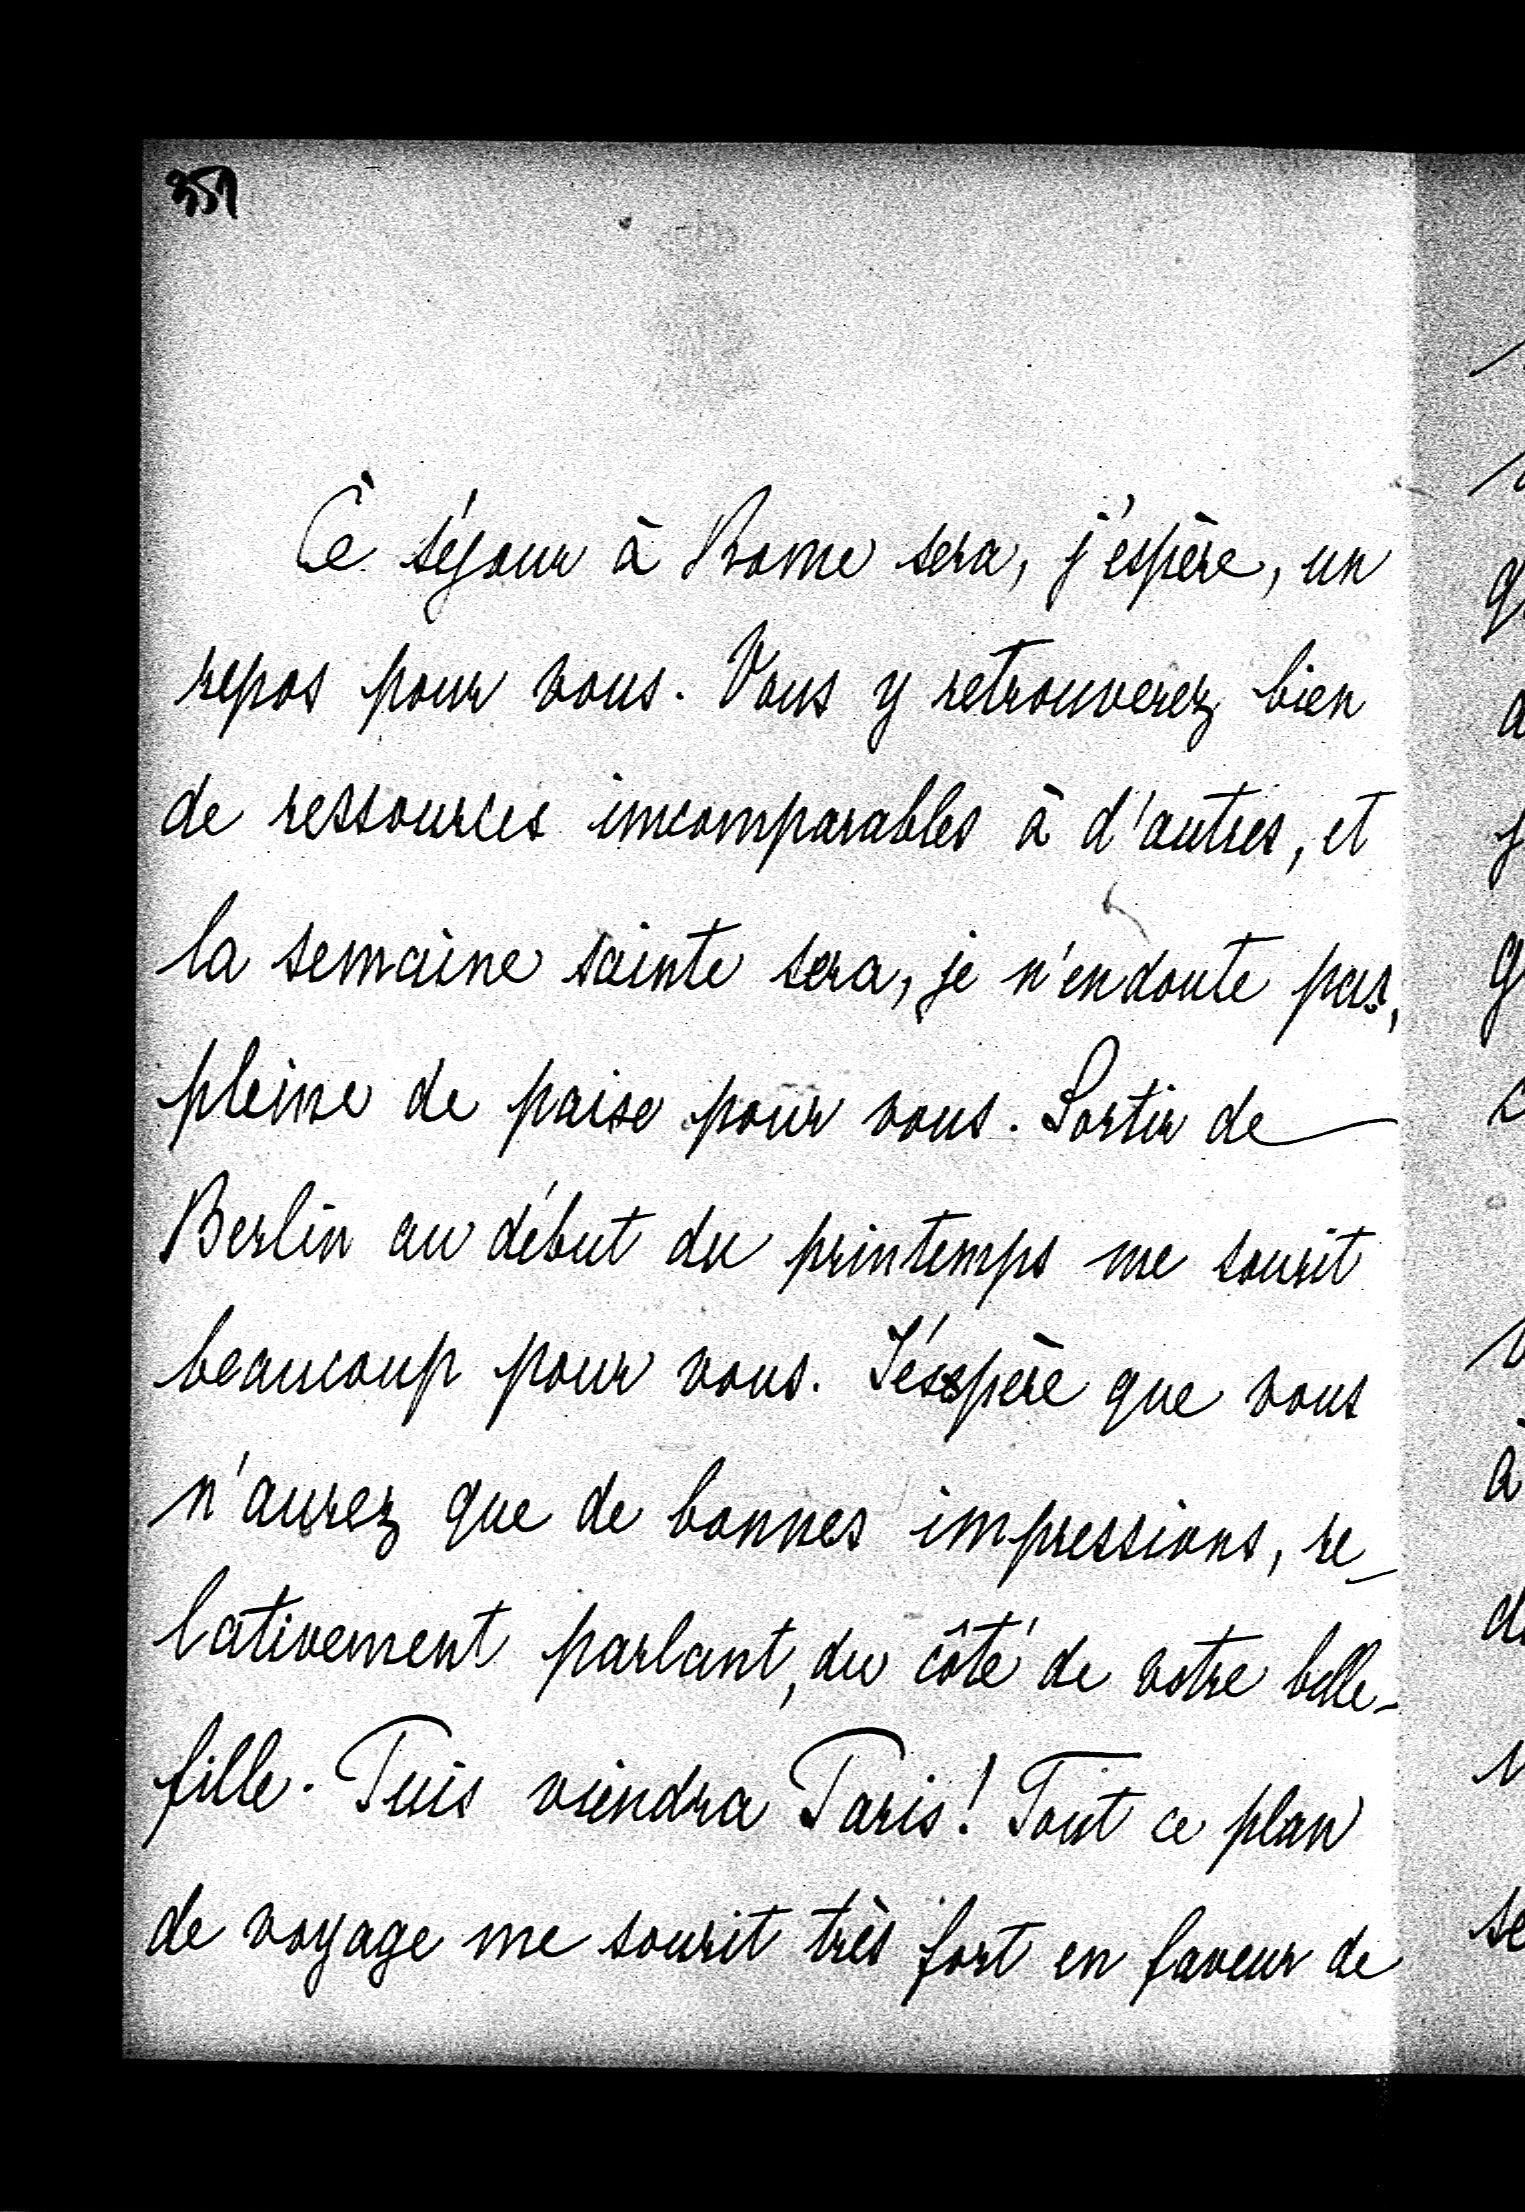 351
Ce séjour à Rome sera, j'espère, un
repos pour vous. Vous y retrouverez bien
de ressources incomparables à d'autres, et
la semaine sainte sera, je n'en doute pas,
pleine de paise pour vous. Sortir de
Berlin au début du printemps me sourit
beaucoup pour vous. J'éspère que vous
n'aurez que de bonnes impressions, re_
lativement parlant, du côté de votre belle-
fille. Puis viendra Paris! Tout ce plan
de voyage me sourit très fort en faveur de